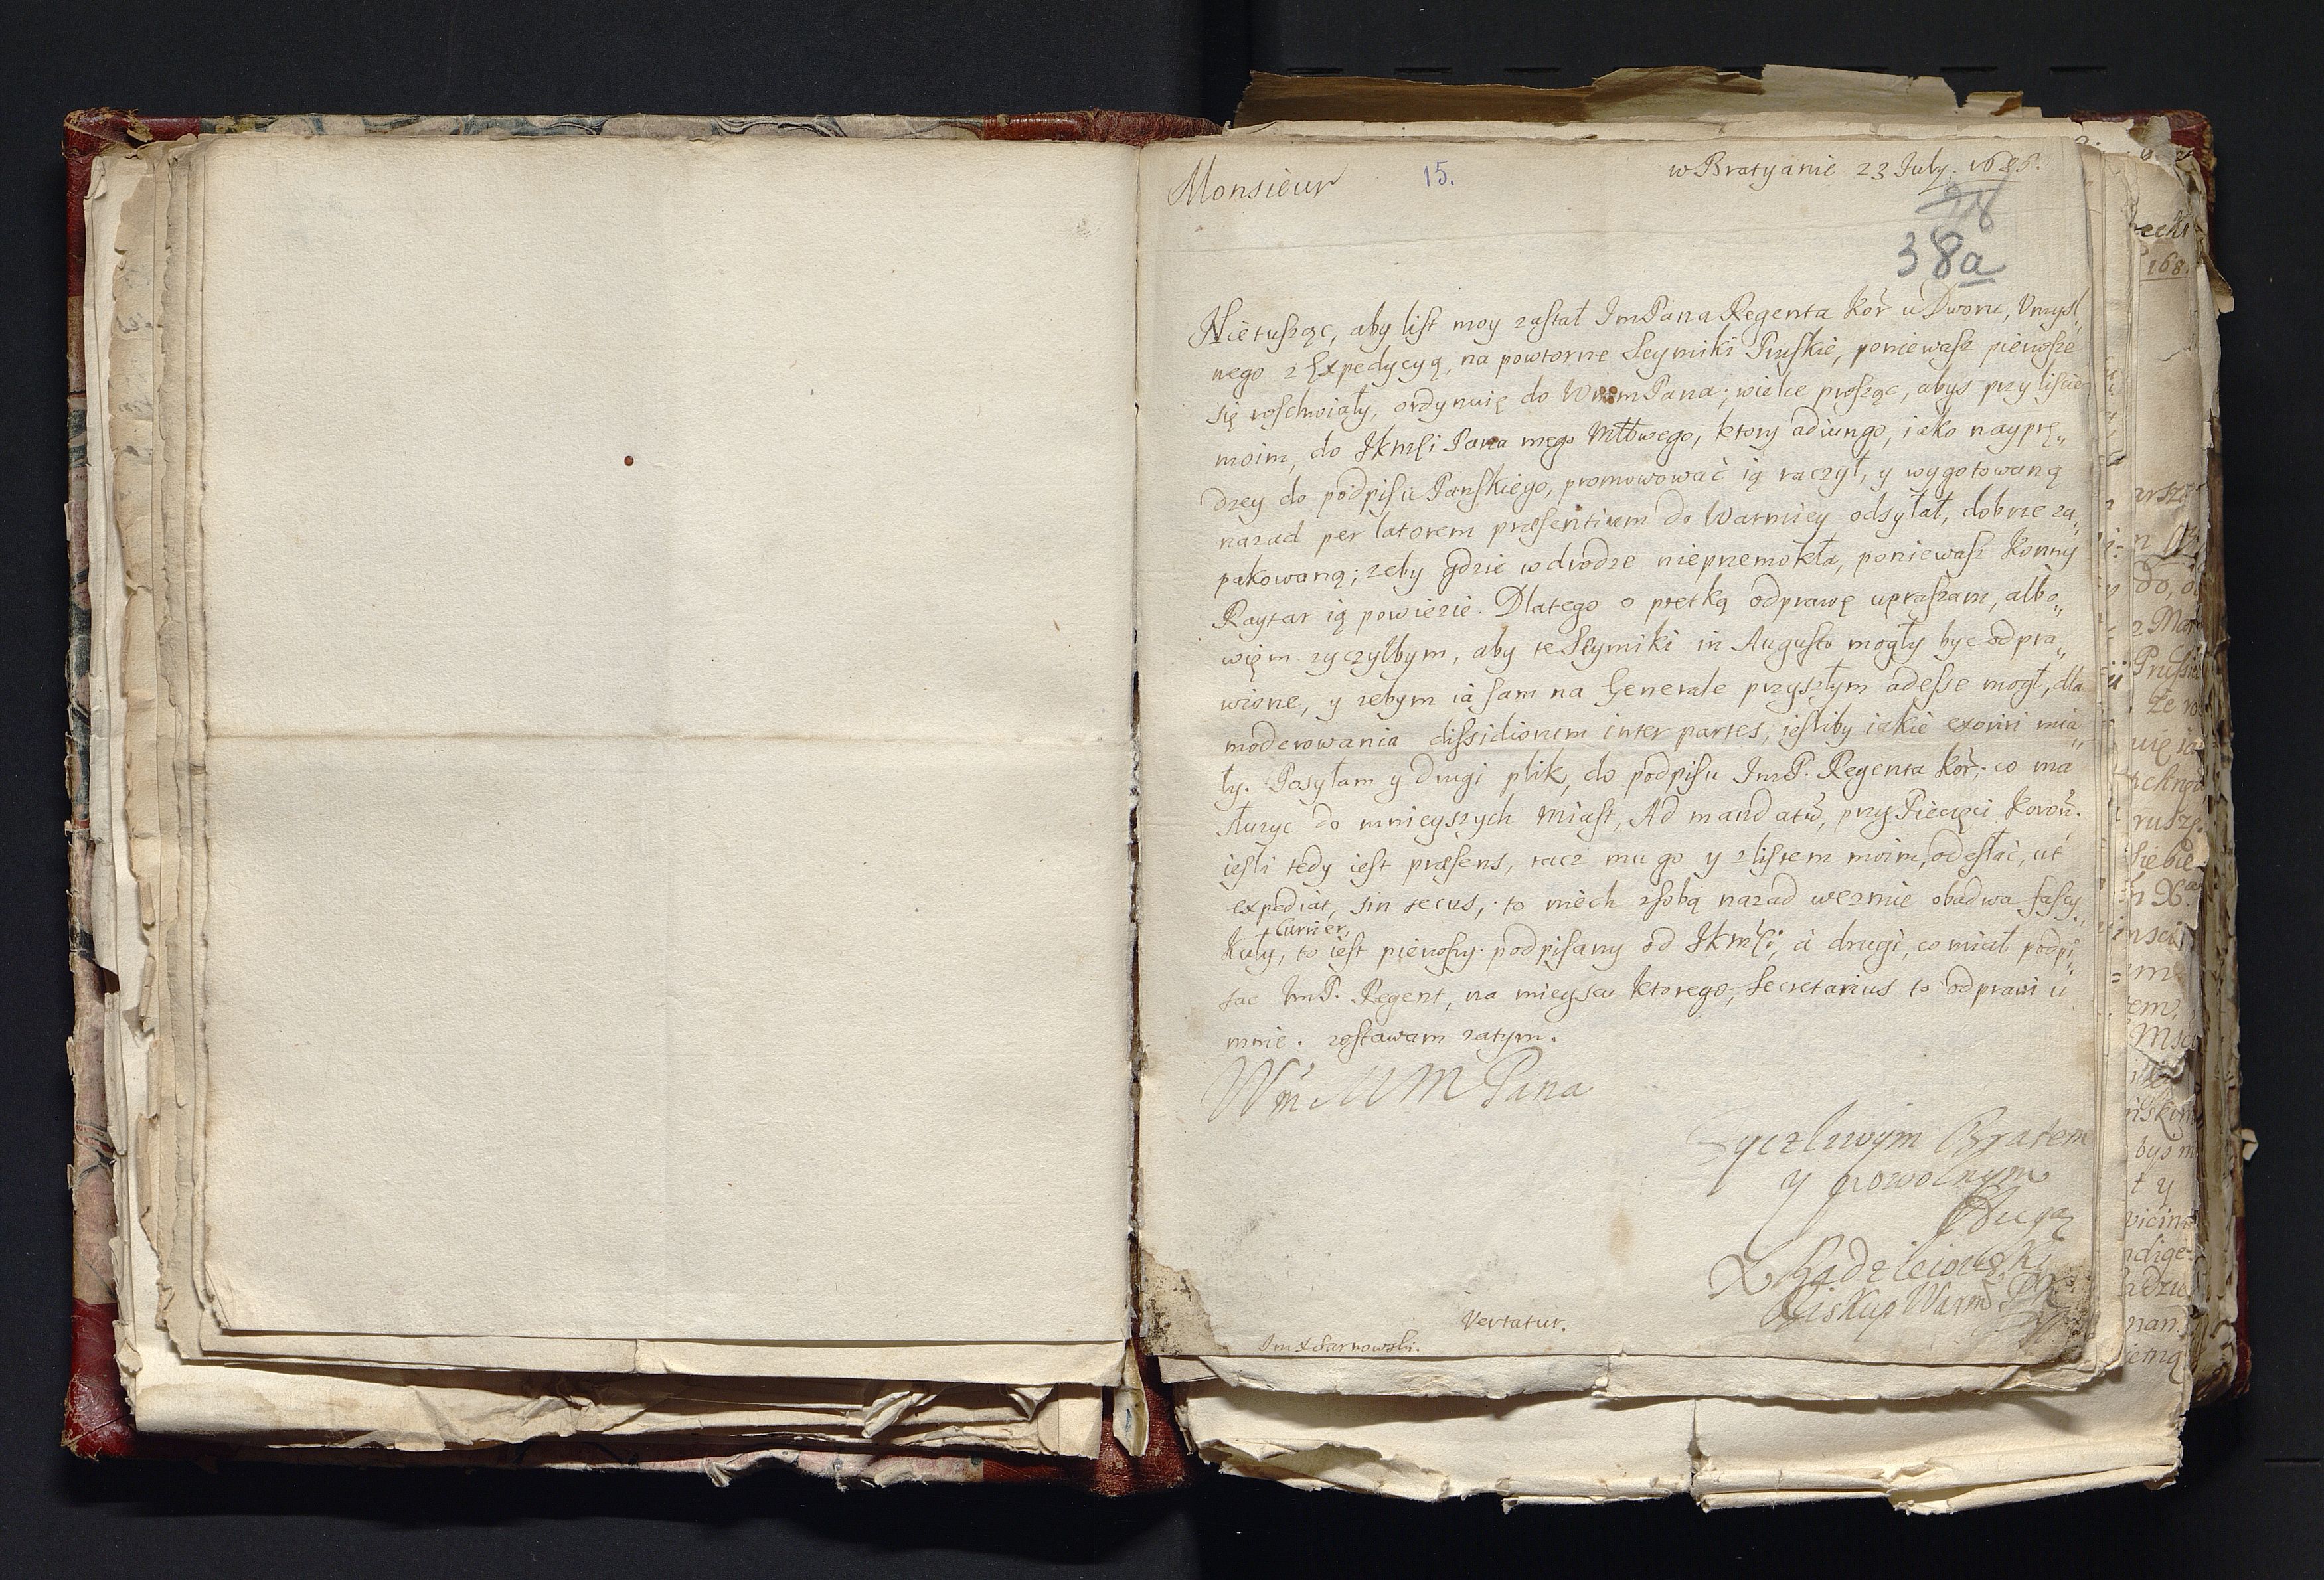 Monsieur
15.
w Bratyanie 23 July. 1686.
38a
Nietusząc, aby list moy zastał JmPana Regenta Kor̃ u Dworu, Vmyśl„
nego z Expedycyą, na powtorne Seymiki Pruskie, poniewasz pierwsze
się roschwiały, ordynuię do WmmPana; wielce prosząc, abys przy liscie
moim, do Jkmsći Pana mego Młłwego, ktory adiungo, iako nayprę„
dzey do podpisu Pańskiego, promowować ią raczył, y wygotowaną
nazad per latorem præsentium do Warmiey odsyłał, dobrze za„
pakowaną; zeby gdzie wdrodze nieprzemokła, poniewasz Konny
Raytar ią powiezie. Dlatego o prętką odprawę upraszam, albo„
więm zyczyłbym, aby te Seymiki in Augusto mogły bydz odpra„
wione, y zebym ia sam na Generale przyszłym adesse mogł, dla
moderowania dissidiorum inter partes, iesliby iakie exoriri mia„
ły. Posyłam y drugi plik, do podpisu JmP. Regenta Kor̃; co ma
słuzyc do mnieyszych Miast, Ad mandatũ, przy Pieczęci Koroñ.
iesli tedy iest præsens, racz mu go y zlistem moim, odesłać, ut
expediat, sin secus, to niech zsobą nazad wezmie obadwa fascy„
Curier,
kuły, to iest pierwszy podpisany od Jkmsći; a drugi, co miał podpi„
sac JmP. Regent, na mieyscu ktorego, Secretarius to odprawi u
mnie. zostawam zatym.
Wm̃ M M Pana
Zyczliwym Bratem
y powolnym
Sługą
X Radzieiowski
Biskup Warm̃
Vertatur.
JmX Sarnowski.